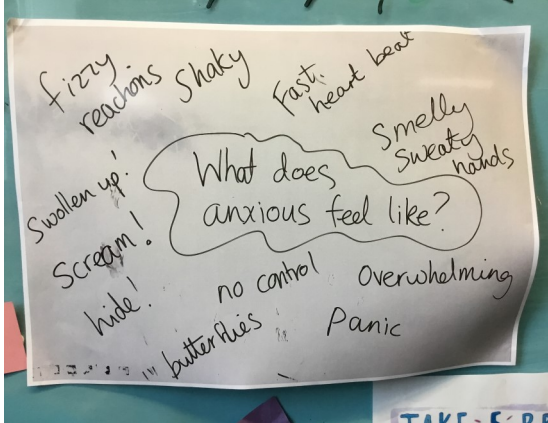 fizzy
reactions
Shaky
Fast
heart beat
Smelly
sweaty
hands
What does
anxious feel like?
Swollen up!
Scream!
hide!
no control
Overwhelming
butterflies
Panic
TAKE